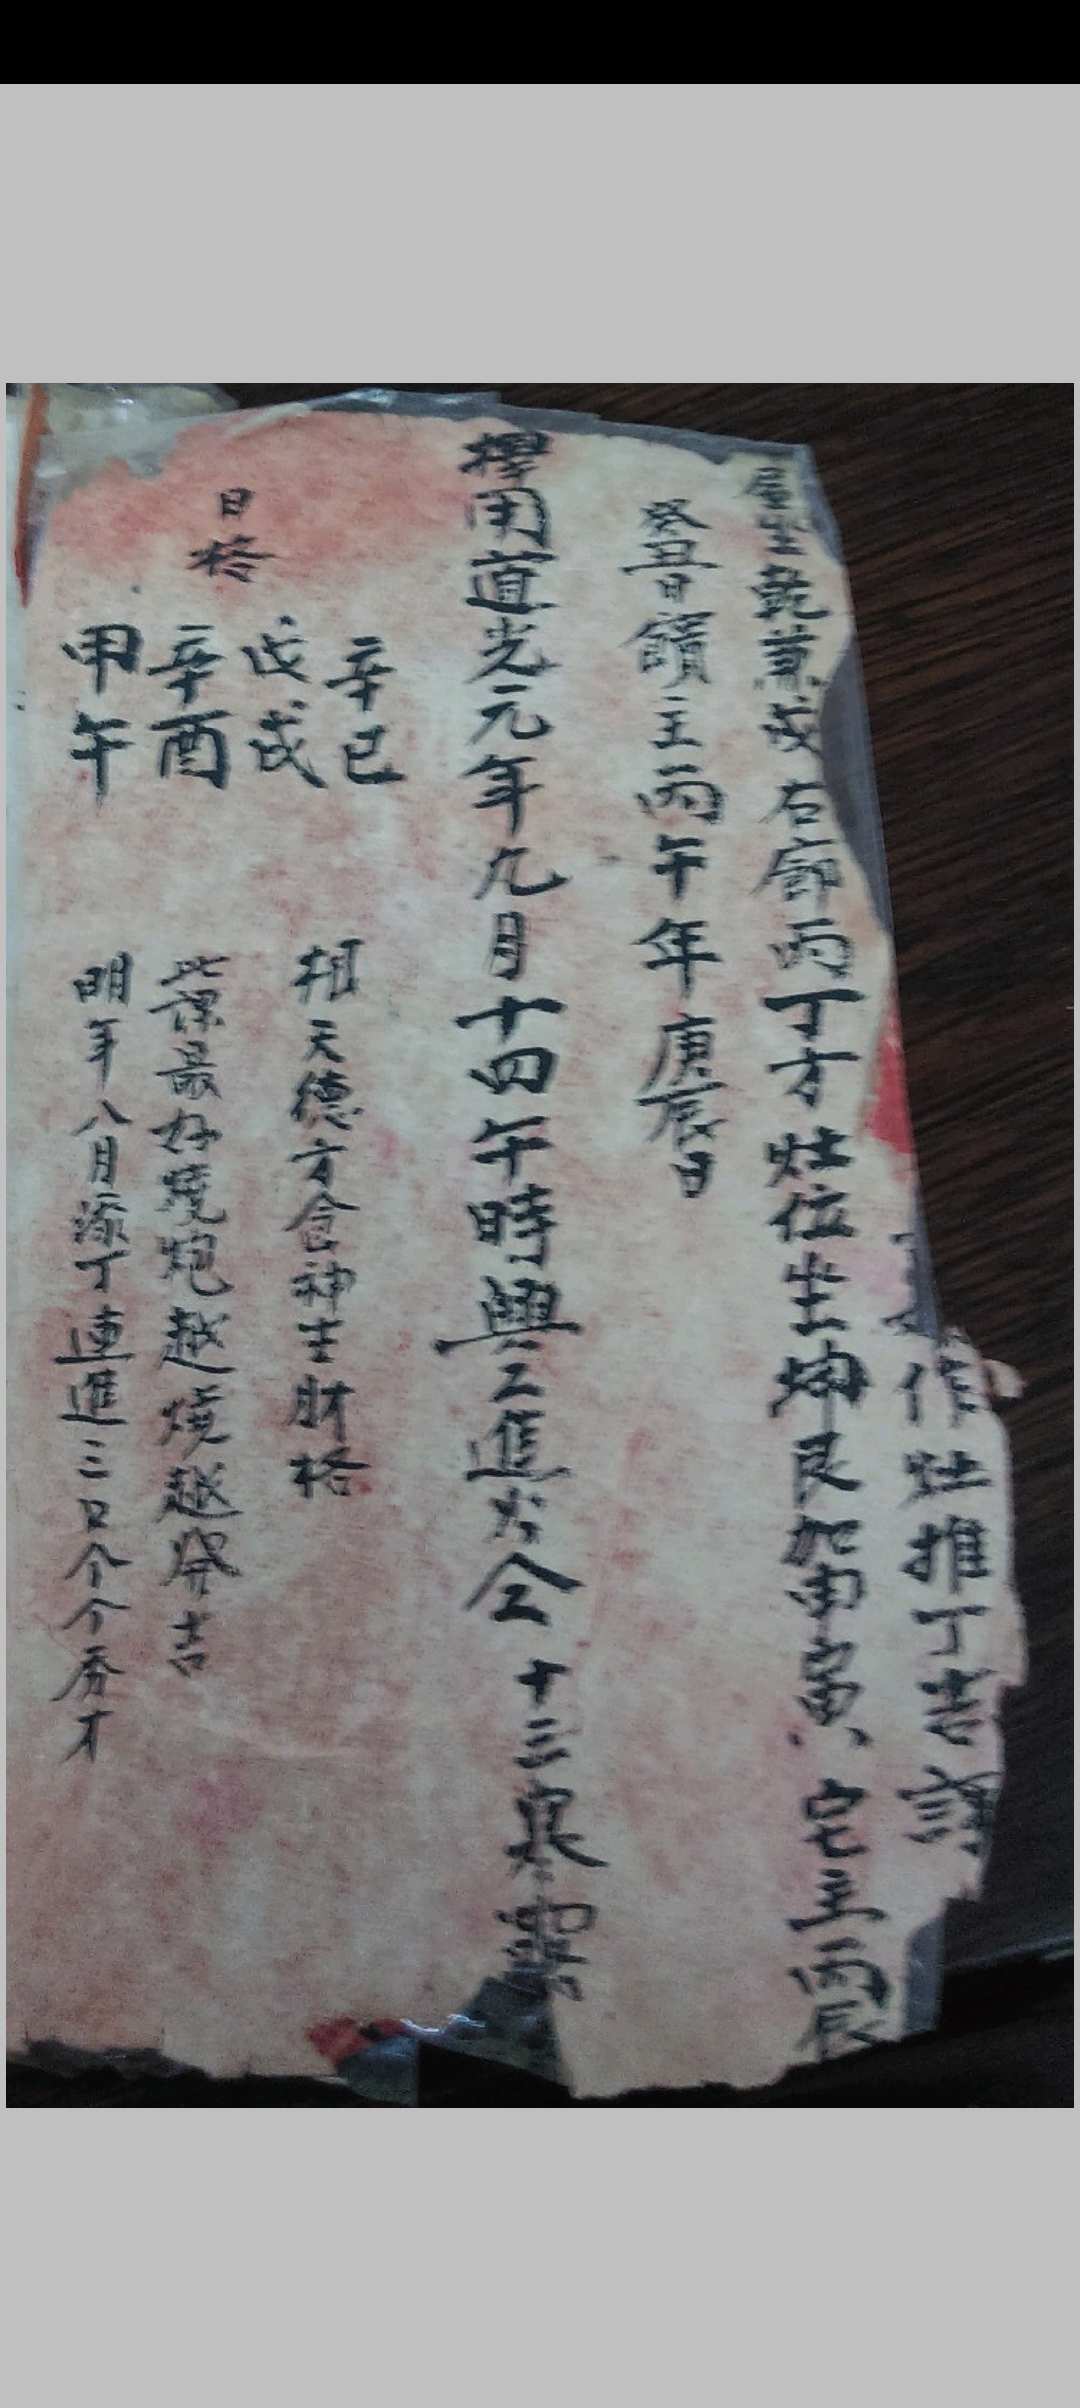 作灶推丁吉課
屋坐乾兼戌右廊丙丁方灶位坐坤艮加申寅宅主丙辰
癸丑日饋主丙午年庚辰日
擇用道光元年九月十四午時興工進火仝十三寒露
辛巳
戊戌
辛酉
甲午
日格
相天德方食神生財格
此課最好燒炮越燒越發吉
明年八月添丁連進三口个个秀才